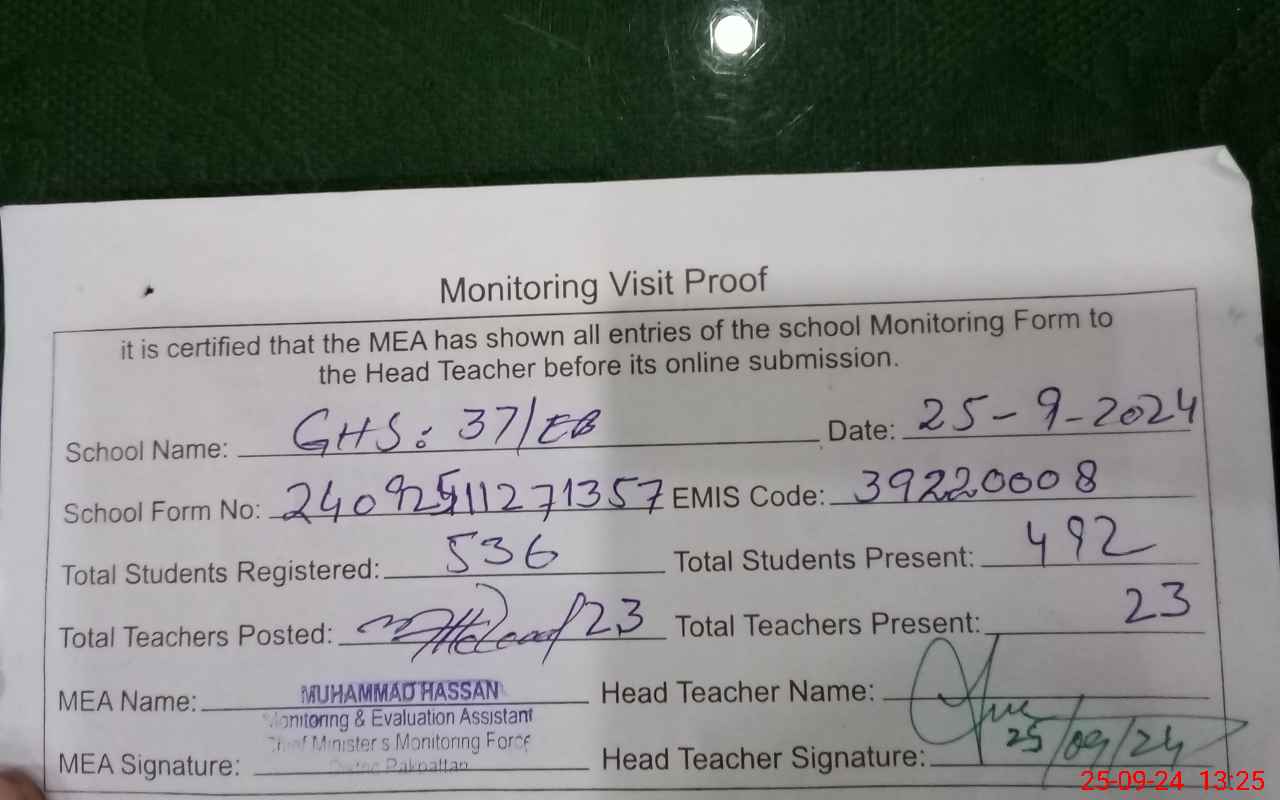 Monitoring Visit Proof
it is certified that the MEA has shown all entries of the school Monitoring Form to
the Head Teacher before its online submission.
School Name: GHS: 37/EB Date: 25-9-2024
School Form No: 24092511271357 EMIS Code: 39220008
Total Students Registered: 536 Total Students Present: 492
Total Teachers Posted: 23 Total Teachers Present: 23
MEA Name: MUHAMMAD HASSAN Head Teacher Name:
Monitoring & Evaluation Assistant
Chief Minister s Monitoring Force
MEA Signature: Pakpattan Head Teacher Signature: 25/09/24
25-09-24 13:25